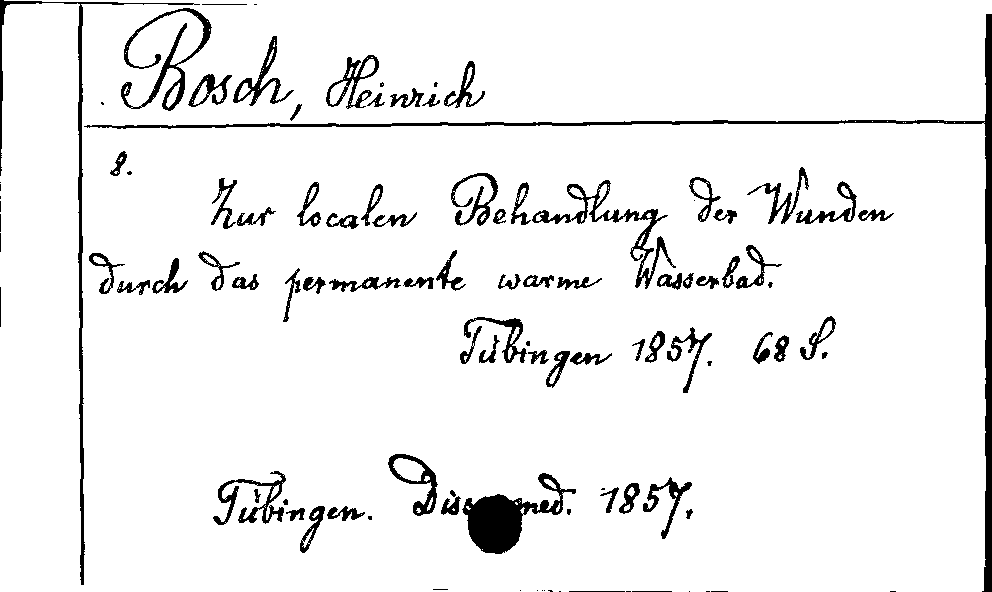 Bosch, Heinrich
8.
Zur localen Behandlung der Wunden
durch das permanente warme Wasserbad.
Tübingen 1857. 68 S.
Tübingen. Diss. med. 1857.